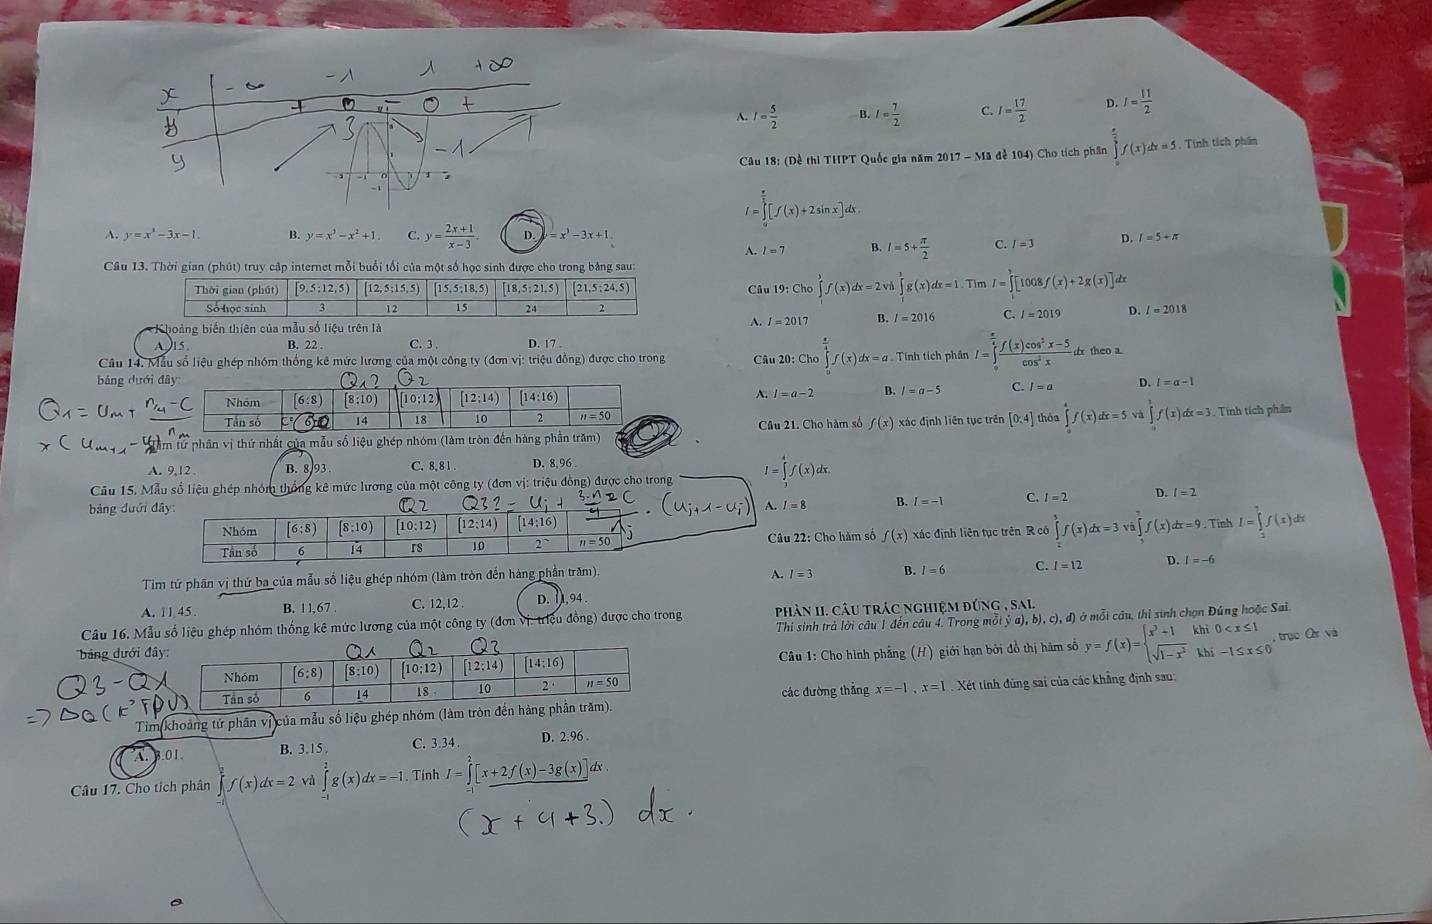 x -∞ -1 1 +∞
y' + 0 - 0 +
y 3 -1
A. y = x³ - 3x - 1. B. y = x³ - x² + 1. C. y = (2x+1)/(x-3). D. y = x³ - 3x + 1.
Câu 13. Thời gian (phút) truy cập internet mỗi buổi tối của một số học sinh được cho trong bảng sau:
Thời gian (phút) [9,5;12,5) [12,5;15,5) [15,5;18,5) [18,5;21,5) [21,5;24,5)
Số học sinh 3 12 15 24 2
Khoảng biến thiên của mẫu số liệu trên là
A. 15. B. 22. C. 3. D. 17.
Câu 14. Mẫu số liệu ghép nhóm thống kê mức lương của một công ty (đơn vị: triệu đồng) được cho trong
bảng dưới đây:
Q1? Q2
Nhóm [6;8) [8;10) [10;12) [12;14) [14;16)
Tần số 6 14 18 10 2 n = 50
Tìm tứ phân vị thứ nhất của mẫu số liệu ghép nhóm (làm tròn đến hàng phần trăm)
A. 9,12. B. 8,93. C. 8,81. D. 8,96.
Câu 15. Mẫu số liệu ghép nhóm thống kê mức lương của một công ty (đơn vị: triệu đồng) được cho trong
bảng dưới đây:
Q2 Q3? = Uj + (3.n/4 - C)/nj . (Uj+1 - Uj)
Nhóm [6;8) [8;10) [10;12) [12;14) [14;16)
Tần số 6 14 18 10 2 n = 50
Tìm tứ phân vị thứ ba của mẫu số liệu ghép nhóm (làm tròn đến hàng phần trăm).
A. 11,45. B. 11,67. C. 12,12. D. 11,94.
Câu 16. Mẫu số liệu ghép nhóm thống kê mức lương của một công ty (đơn vị: triệu đồng) được cho trong
bảng dưới đây:
Q1 Q2 Q3
Q3 - Q1
Nhóm [6;8) [8;10) [10;12) [12;14) [14;16)
Tần số 6 14 18 10 2 n = 50
=> ΔQ (K² TPV)
Tìm khoảng tứ phân vị của mẫu số liệu ghép nhóm (làm tròn đến hàng phần trăm).
A. 3.01. B. 3.15. C. 3.34. D. 2.96.
Câu 17. Cho tích phân ∫₋₁² f(x)dx = 2 và ∫₋₁² g(x)dx = -1. Tính I = ∫₋₁² [x + 2f(x) - 3g(x)]dx.
(x + 4 + 3.) dx.
A. I = 5/2 B. I = 7/2 C. I = 17/2 D. I = 11/2
Câu 18: (Đề thi THPT Quốc gia năm 2017 - Mã đề 104) Cho tích phân ∫₀^(π/2) f(x)dx = 5. Tính tích phân
I = ∫₀^(π/2) [f(x) + 2sin x]dx.
A. I = 7 B. I = 5 + π/2 C. I = 3 D. I = 5 + π
Câu 19: Cho ∫₁³ f(x)dx = 2 và ∫₁³ g(x)dx = 1. Tìm I = ∫₁³ [1008f(x) + 2g(x)]dx
A. I = 2017 B. I = 2016 C. I = 2019 D. I = 2018
Câu 20: Cho ∫₀^(π/4) f(x)dx = a. Tính tích phân I = ∫₀^(π/4) (f(x)cos²x - 5)/cos²x dx theo a.
A. I = a - 2 B. I = a - 5 C. I = a D. I = a - 1
Câu 21. Cho hàm số f(x) xác định liên tục trên [0;4] thỏa ∫₀⁴ f(x)dx = 5 và ∫₀³ f(x)dx = 3. Tính tích phân
I = ∫₃⁴ f(x)dx.
A. I = 8 B. I = -1 C. I = 2 D. I = 2
Câu 22: Cho hàm số f(x) xác định liên tục trên ℝ có ∫₂⁵ f(x)dx = 3 và ∫₅⁷ f(x)dx = 9. Tính I = ∫₂⁷ f(x)dx
A. I = 3 B. I = 6 C. I = 12 D. I = -6
PHẦN II. CÂU TRẮC NGHIỆM ĐÚNG , SAI.
Thí sinh trả lời câu 1 đến câu 4. Trong mỗi ý a), b), c), d) ở mỗi câu, thí sinh chọn Đúng hoặc Sai.
Câu 1: Cho hình phẳng (H) giới hạn bởi đồ thị hàm số y = f(x) = { x³ + 1 khi 0 < x ≤ 1; √(1 - x²) khi -1 ≤ x ≤ 0 , trục Ox và
các đường thẳng x = -1 , x = 1 . Xét tính đúng sai của các khẳng định sau: